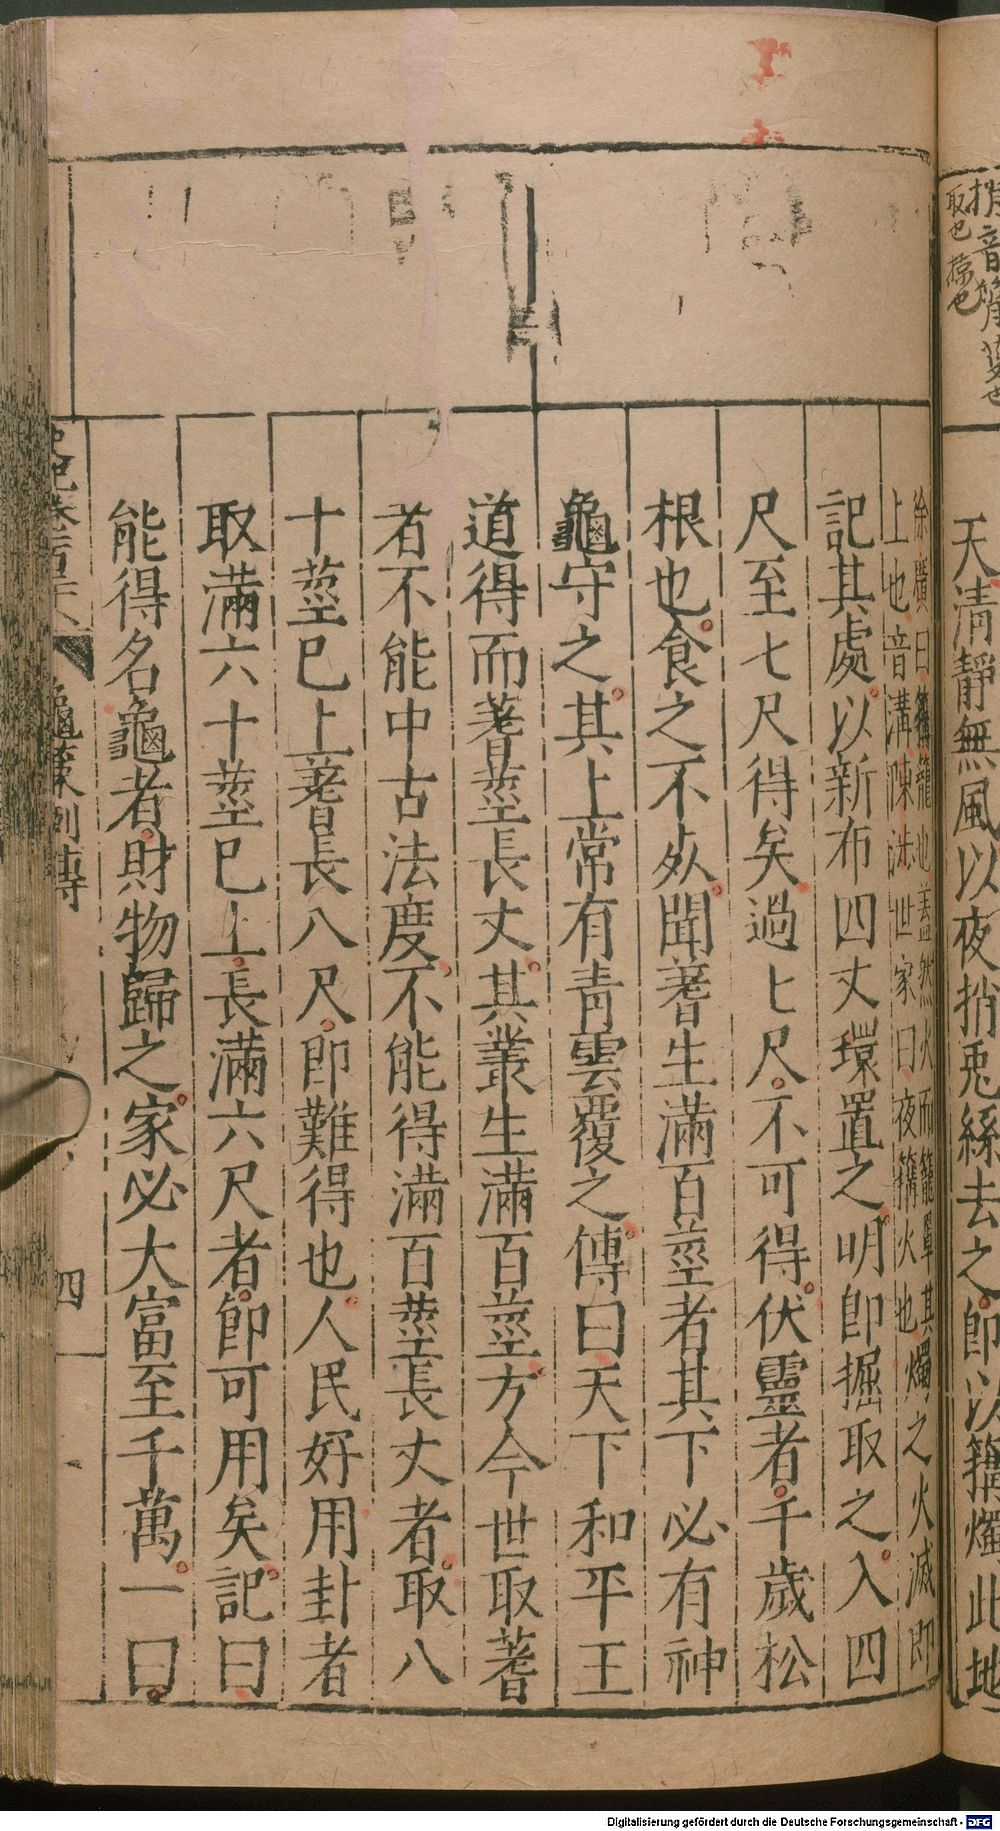 捎音筲蔓也
取也掠也
天淸靜無風以夜捎兎絲去之卽以篝燭此地
徐廣曰篝籠也葢然火而籠罩其燭之火滅卽
上也音溝陳涉世家曰夜篝火也
記其處以新布四丈環置之明卽掘取之入四
尺至七尺得矣過七尺不可得伏靈者千歲松
根也食之不死聞蓍生滿百莖者其下必有神
龜守之其上常有靑雲覆之傳曰天下和平王
道得而蓍莖長丈其叢生滿百莖方今世取蓍
者不能中古法度不能得滿百莖長丈者取八
十莖已上蓍長八尺卽難得也人民好用卦者
取滿六十莖已上長滿六尺者卽可用矣記曰
能得名龜者財物歸之家必大富至千萬一曰
史記卷百二十八 龜策列傳 四
Digitalisierung gefördert durch die Deutsche Forschungsgemeinschaft - DFG